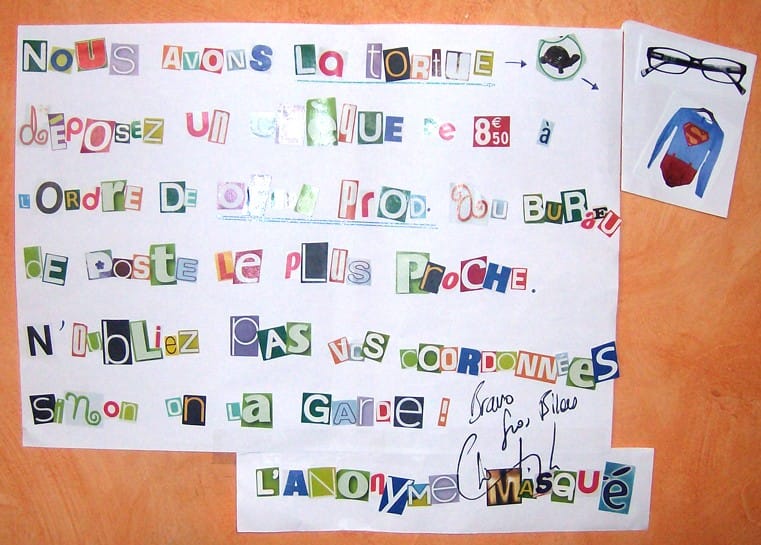 NOUS AVONS LA TORTUE
DÉPOSEZ UN CHÈQUE DE 8€50 à
L'ORDRE DE PROD. AU BUREAU
DE POSTE LE PLUS PROCHE.
N'OUBLIEZ PAS VOS COORDONNÉES
SiNON ON LA GARDE !
Bravo
L'ANONYME MASQUÉ